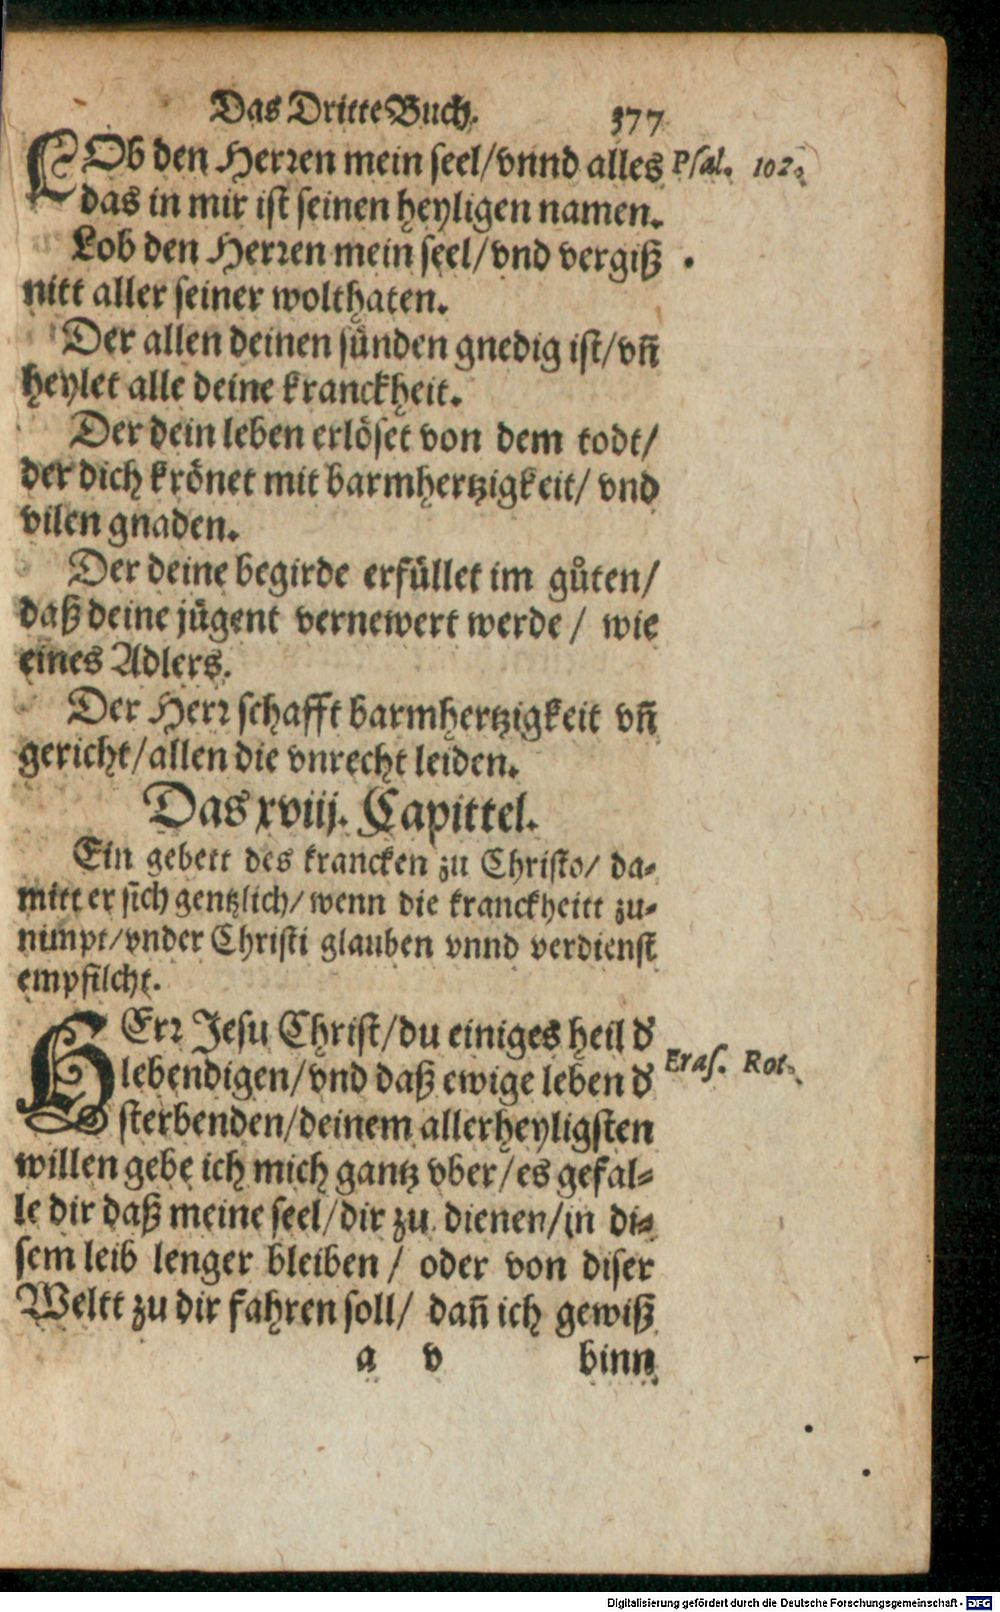 Das Dritte Buch. 377
LOb den Herren mein seel/vnnd alles Psal. 102.
das in mir ist seinen heyligen namen.
Lob den Herren mein seel/vnd vergiß
nitt aller seiner wolthaten.
Der allen deinen sünden gnedig ist/vñ
heylet alle deine kranckheit.
Der dein leben erlöset von dem todt/
der dich krönet mit barmhertzigkeit/ vnd
vilen gnaden.
Der deine begirde erfüllet im gůten/
daß deine jügent vernewert werde / wie
eines Adlers.
Der Herr schafft barmhertzigkeit vñ
gericht/allen die vnrecht leiden.
Das xviij. Capittel.
Ein gebett des krancken zu Christo/ da-
mitt er sich gentzlich/ wenn die kranckheitt zu-
nimpt/vnder Christi glauben vnnd verdienst
empfilcht.
HErr Jesu Christ/du einiges heil d'
lebendigen/vnd daß ewige leben d' Eras. Rot.
sterbenden/deinem allerheyligsten
willen gebe ich mich gantz vber/es gefal-
le dir daß meine seel/dir zu dienen/in di-
sem leib lenger bleiben / oder von diser
Weltt zu dir fahren soll/ dañ ich gewiß
a v binn
Digitalisierung gefördert durch die Deutsche Forschungsgemeinschaft - DFG